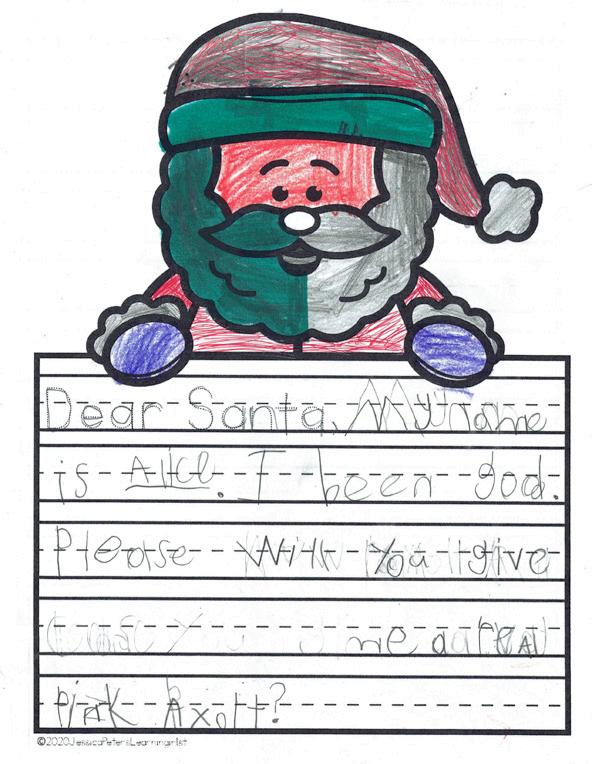 Dear Santa, My name
is Alice. I been good.
Please Will You give
me a real
Pink Axolt?
©2020JessicaPetersLearninginist